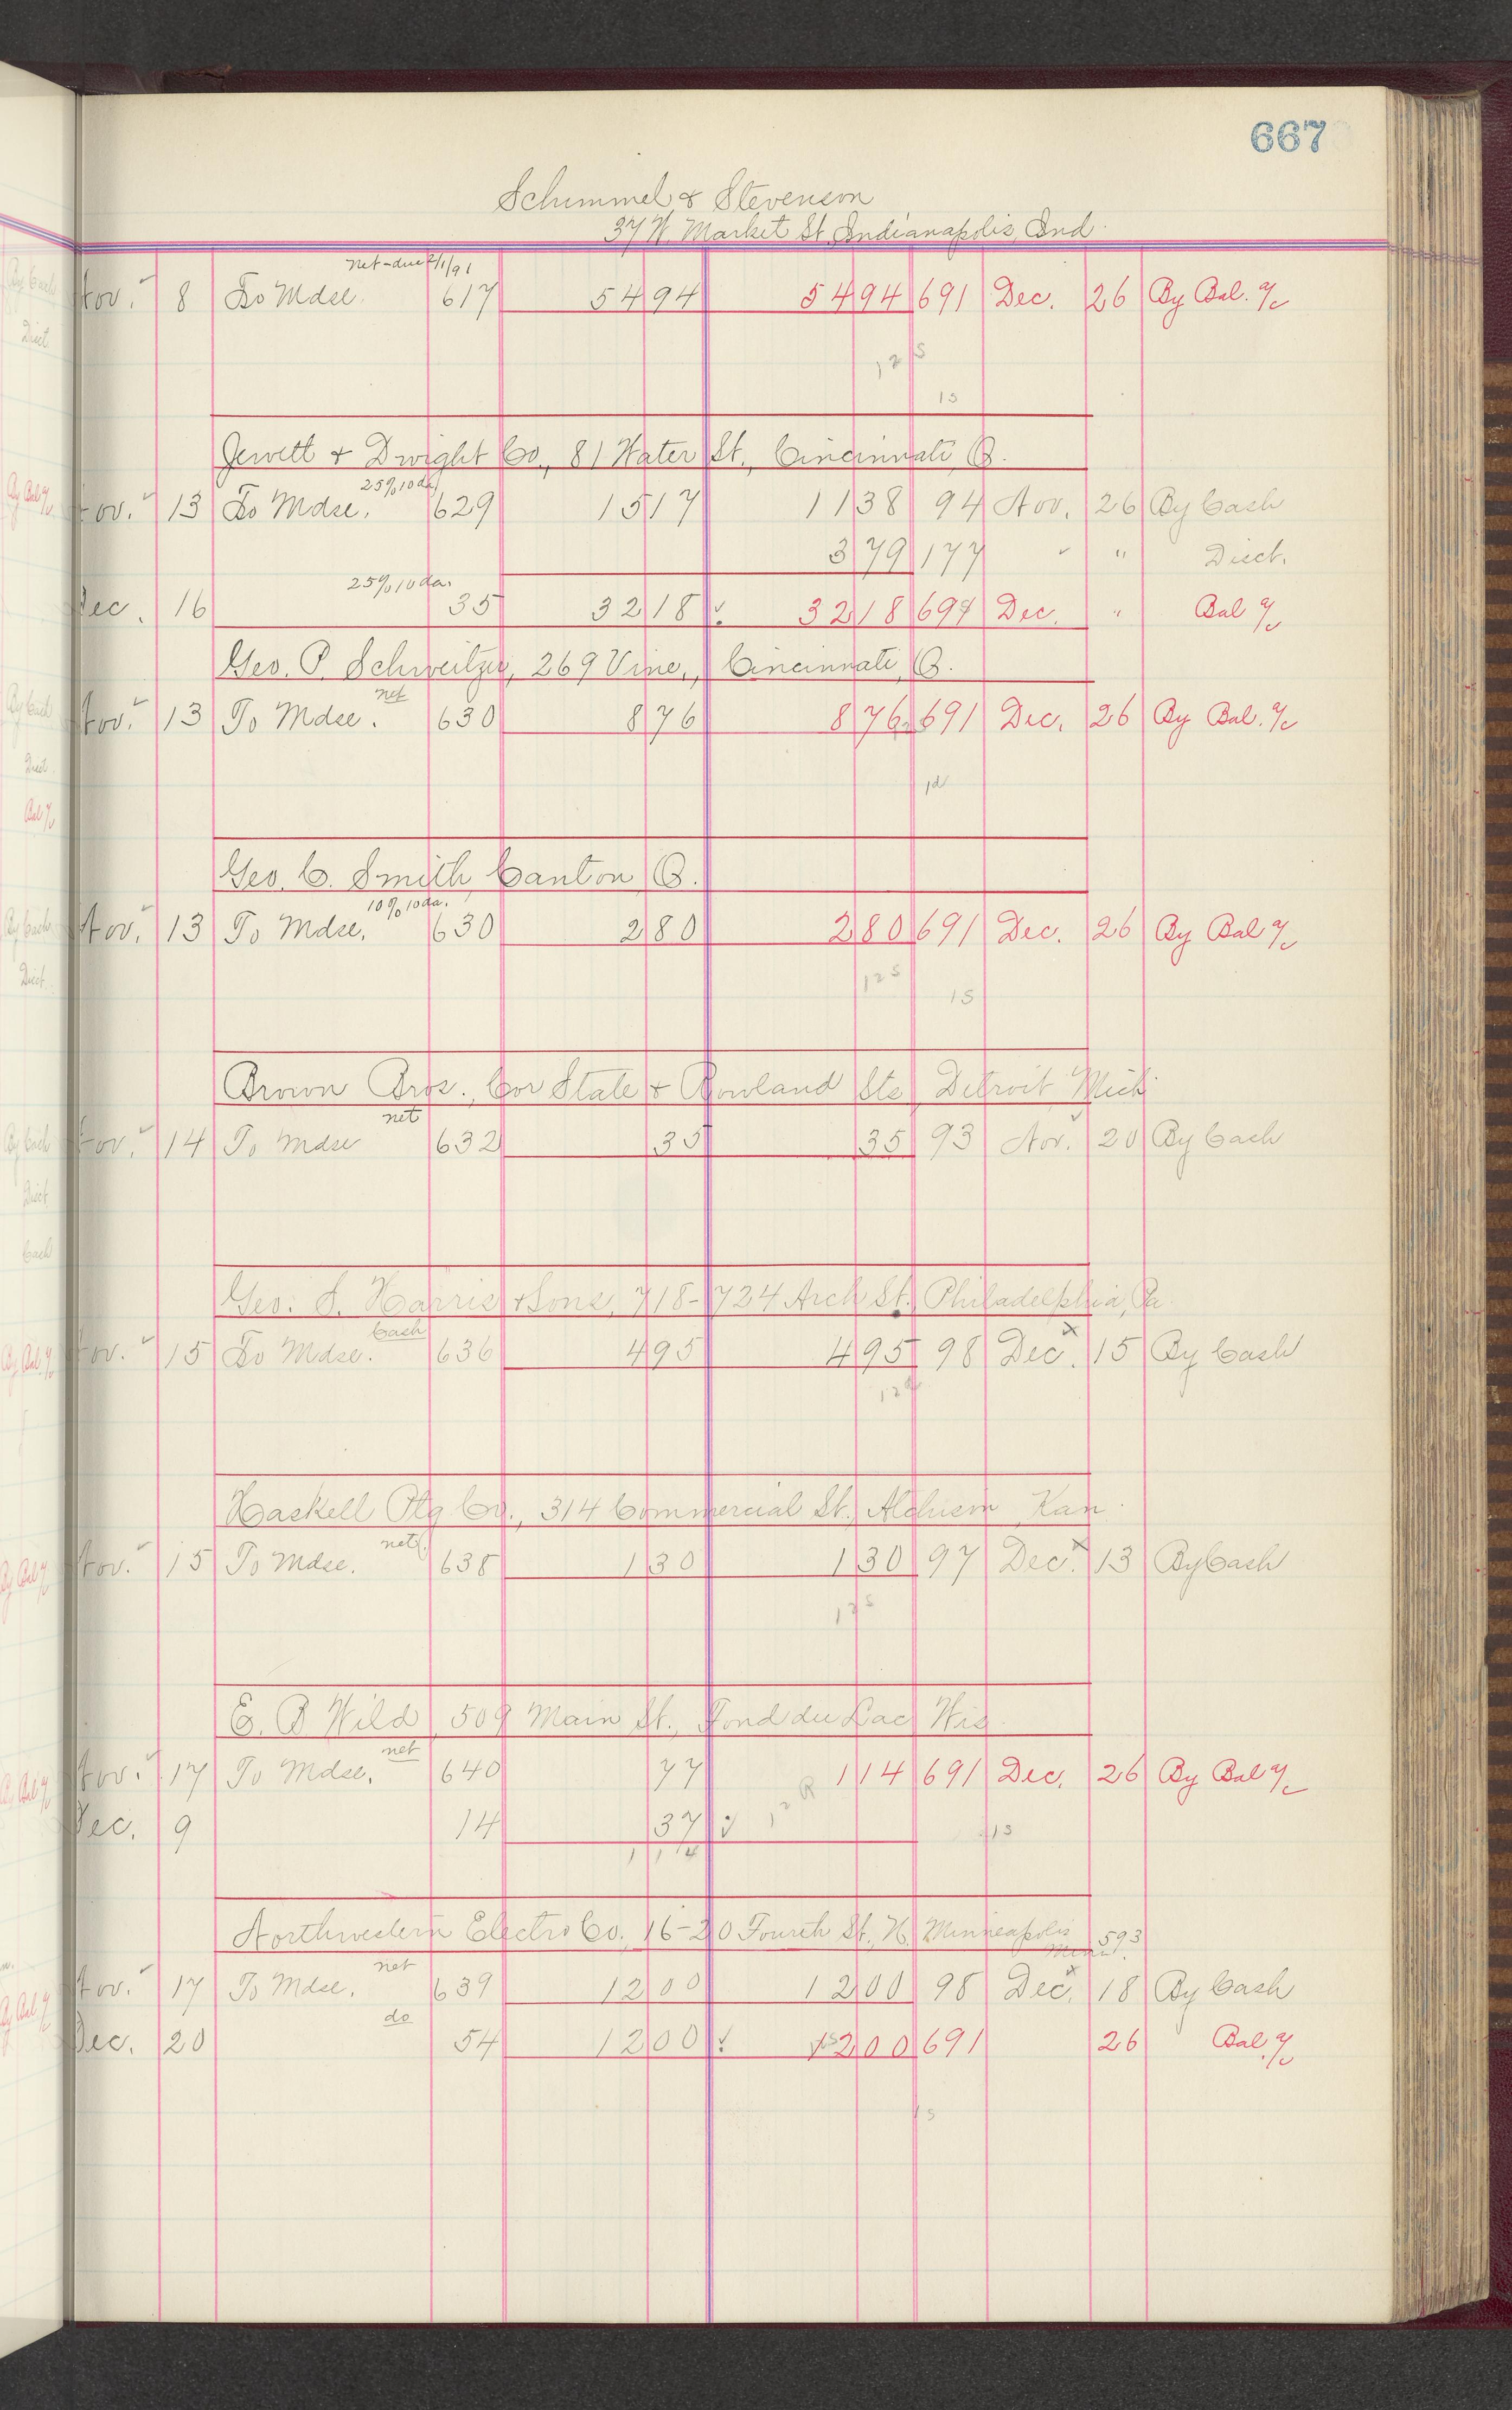 667
Schimmel & Stevenson
37 W. Market St. Indianapolis, Ind.
net-due 2/1/91
Nov. 8 To Mdse. 617 54 94 54 94 691 Dec. 26 By Bal. a/c
12 S
1S
Jewett & Dwight Co., 81 Water St., Cincinnati, O.
25% 10 da
Nov. 13 To Mdse. 629 15 17 11 38 94 Nov. 26 By Cash
3 79 177 " " Disct.
25% 10 da.
Dec. 16 35 32 18 32 18 694 Dec. " Bal a/c
Geo. P. Schweitzer, 269 Vine, Cincinnati, O.
net
Nov. 13 To Mdse. 630 8 76 8 76 691 Dec. 26 By Bal. a/c
Geo. C. Smith, Canton, O.
10% 10 da.
Nov. 13 To Mdse. 630 2 80 2 80 691 Dec. 26 By Bal a/c
12 S
1S
Brown Bros., Cor State & Rowland Sts Detroit Mich
net
Nov. 14 To Mdse 632 35 35 93 Nov. 20 By Cash
Geo. S. Harris & Sons, 718-724 Arch St., Philadelphia, Pa.
Cash
Nov. 15 To Mdse. 636 4 95 4 95 98 Dec. x 15 By Cash
Haskell Ptg Co., 314 Commercial St., Atchison Kan.
net
Nov. 15 To Mdse. 638 1 30 1 30 97 Dec. x 13 By Cash
12 S
E. B Wild, 509 Main St., Fond du Lac Wis.
net
Nov. 17 To Mdse. 640 77 1 14 691 Dec. 26 By Bal a/c
Dec. 9 14 37
1S
1 14
Northwestern Electro Co., 16-20 Fourth St., N. Minneapolis
Minn. 593
net
Nov. 17 To Mdse. 639 12 00 12 00 98 Dec. x 18 By Cash
do
Dec. 20 54 12 00 12 00 691 26 Bal. a/c
1S